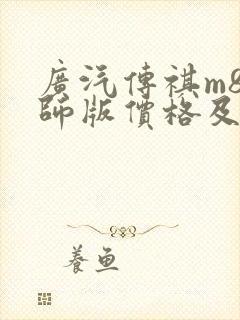 廣汽傳祺m8
師版價格及
養魚